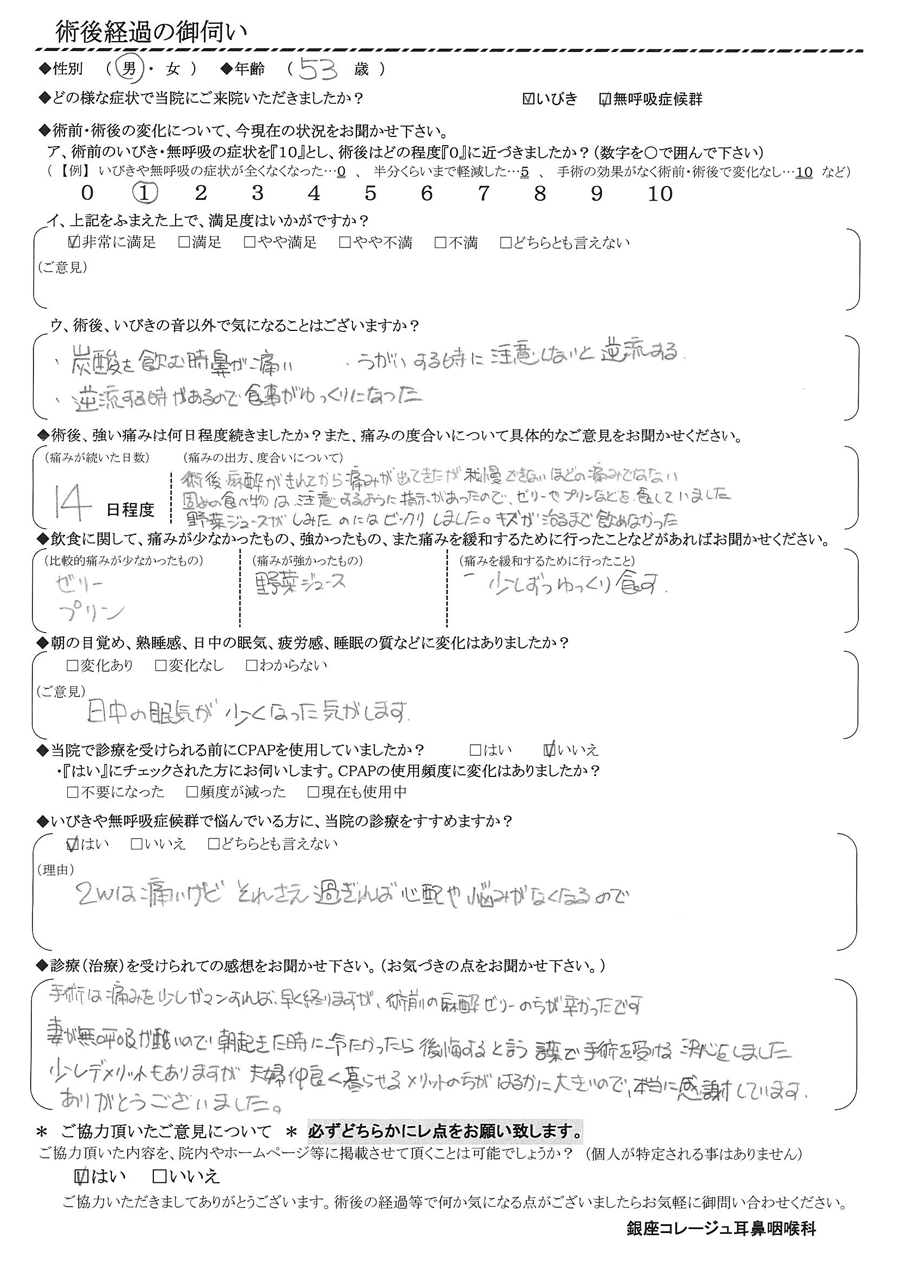 術後経過の御伺い
◆性別 （ 男 ・ 女 ） ◆年齢 （ 53 歳 ）
◆どの様な症状で当院にご来院いただきましたか？ ☑いびき ☑無呼吸症候群
◆術前・術後の変化について、今現在の状況をお聞かせ下さい。
ア、術前のいびき・無呼吸の症状を『10』とし、術後はどの程度『0』に近づきましたか？（数字を○で囲んで下さい）
（ 【例】 いびきや無呼吸の症状が全くなくなった…0 、 半分くらいまで軽減した…5 、 手術の効果がなく術前・術後で変化なし…10 など）
0 1 2 3 4 5 6 7 8 9 10
イ、上記をふまえた上で、満足度はいかがですか？
☑非常に満足 □満足 □やや満足 □やや不満 □不満 □どちらとも言えない
（ご意見）
ウ、術後、いびきの音以外で気になることはございますか？
、炭酸を飲む時鼻が痛い 、うがいする時に注意しないと逆流する
、逆流する時があるので食事がゆっくりになった
◆術後、強い痛みは何日程度続きましたか？また、痛みの度合いについて具体的なご意見をお聞かせください。
（痛みが続いた日数） （痛みの出方、度合いについて）
14 日程度
術後麻酔がきれてから痛みが出てきたが我慢できないほどの痛みではない
固めの食べ物は注意するように指示があったので、ゼリーやプリンなどを食していました
野菜ジュースがしみたのにはビックリしました。キズが治るまで飲めなかった
◆飲食に関して、痛みが少なかったもの、強かったもの、また痛みを緩和するために行ったことなどがあればお聞かせください。
（比較的痛みが少なかったもの） （痛みが強かったもの） （痛みを緩和するために行ったこと）
ゼリー 野菜ジュース 少しずつゆっくり食す.
プリン
◆朝の目覚め、熟睡感、日中の眠気、疲労感、睡眠の質などに変化はありましたか？
□変化あり □変化なし □わからない
（ご意見）
日中の眠気が少なくなった気がします.
◆当院で診療を受けられる前にCPAPを使用していましたか？ □はい ☑いいえ
・『はい』にチェックされた方にお伺いします。CPAPの使用頻度に変化はありましたか？
□不要になった □頻度が減った □現在も使用中
◆いびきや無呼吸症候群で悩んでいる方に、当院の診療をすすめますか？
☑はい □いいえ □どちらとも言えない
（理由）
2Wは痛いけど それさえ過ぎれば心配や悩みがなくなるので
◆診療（治療）を受けられての感想をお聞かせ下さい。（お気づきの点をお聞かせ下さい。）
手術は痛みを少しガマンすれば、早く終りますが、術前の麻酔ゼリーのちが辛かったです
妻が無呼吸が酷いので朝起きた時に冷たかったら後悔すると言う言葉で手術を受ける決心をしました
少しデメリットもありますが 夫婦仲良く暮らせるメリットのちがはるかに大きいので、本当に感謝しています.
ありがとうございました。
＊ ご協力頂いたご意見について ＊ 必ずどちらかにレ点をお願い致します。
ご協力頂いた内容を、院内やホームページ等に掲載させて頂くことは可能でしょうか？ （個人が特定される事はありません）
☑はい □いいえ
ご協力いただきましてありがとうございます。術後の経過等で何か気になる点がございましたらお気軽に御問い合わせください。
銀座コレージュ耳鼻咽喉科